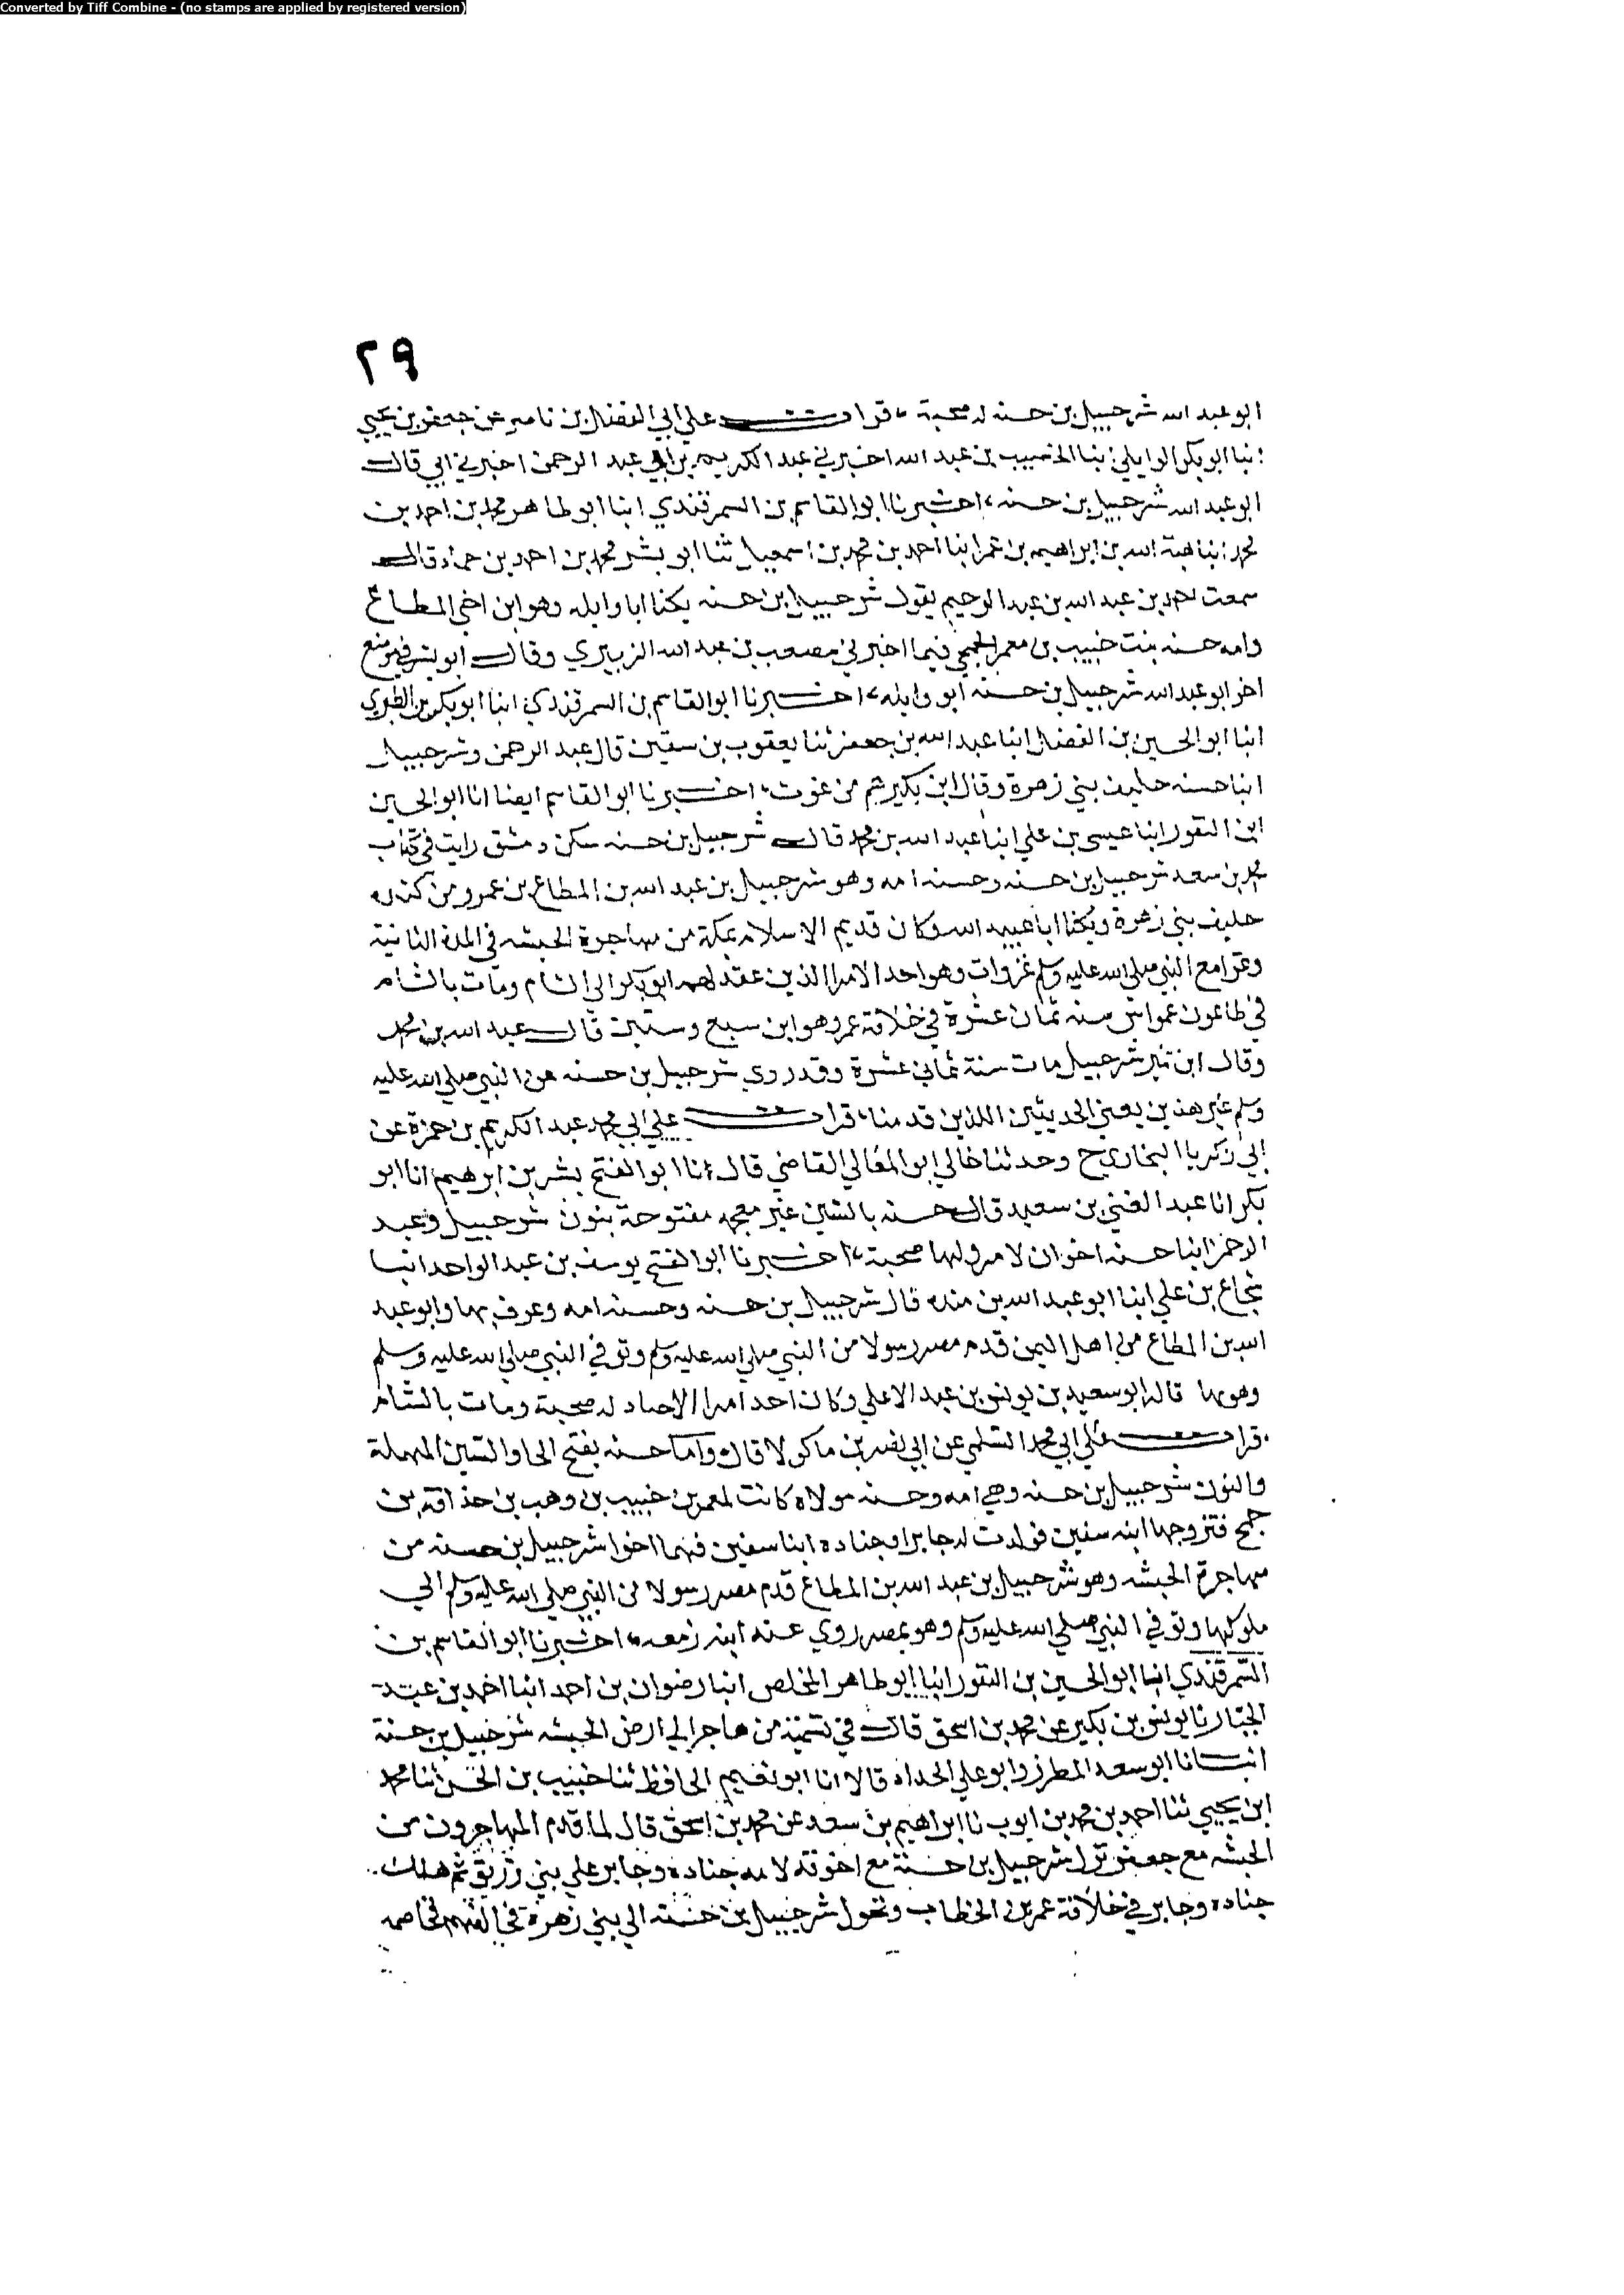 Converted by Tiff Combine - (no stamps are applied by registered version)
٢٩
ابو عبد الله شرحبيل بن حسنه له صحبة قرات علي ابي الفضل بن ناصر عن جعفر بن يحيي
انبا ابو بكر الوايلي انبا الخصيب بن عبد الله اخبرني عبد الكريم بن ابي عبد الرحمن اخبرني ابي قال
ابو عبد الله شرحبيل بن حسنه اخبرنا ابو القاسم بن السمرقندي انبا ابو طاهر محمد بن احمد بن
محمد انبا هبة الله بن ابراهيم بن عمر انبا احمد بن محمد بن اسمعيل ثنا ابو بشر محمد بن احمد بن حماد قال
سمعت احمد بن عبد الله بن عبد الرحيم يقول شرحبيل ابن حسنه يكنا ابا وايله وهو ابن اخي المطاع
وامه حسنه بنت خبيب بن معمر الجمحي فيما اخبرني مصعب بن عبد الله الزبيري وقال ابو بشر في موضع
اخر ابو عبد الله شرحبيل بن حسنه ابو وايله اخبرنا ابو القاسم بن السمرقندي انبا ابو بكر بن الطبري
انبا ابو الحسين بن الفضل انبا عبد الله بن جعفر ثنا يعقوب بن سفين قال عبد الرحمن وشرحبيل
ابنا حسنه حليف بني زهرة وقال ابن بكير هم من غوث اخبرنا ابو القاسم ايضا انا ابو الحسين
ابن النقور انبا عيسى بن علي انبا عبد الله بن محمد قال شرحبيل بن حسنه سكن دمشق رايت في كتاب
محمد بن سعد شرحبيل بن حسنه وحسنه امه وهو شرحبيل بن عبد الله بن المطاع بن عمرو من كنده
حليف بني زهرة ويكنا ابا عبد الله وكان قديم الاسلام بمكة من مهاجرة الحبشه في المرة الثانية
وغزا مع النبي صلي الله عليه وسلم غزوات وهو احد الامرا الذين عقد لهم ابو بكر الي الشام ومات بالشام
في طاعون عمواس سنه ثمان عشرة في خلافة عمر وهو ابن سبع وستين قال عبد الله بن محمد
وقال ابن نمير شرحبيل مات سنة ثماني عشرة وقد روي شرحبيل بن حسنه عن النبي صلي الله عليه
وسلم غير هذين يعني الحديثين اللذين قدمنا قرات علي ابي محمد عبد الكريم بن حمزة عن
ابي زكريا البخاري ح وحدثنا خالي ابو المعالي القاضي قال انا ابو الفتح بشر بن ابرهيم انا ابو
بكر انا عبد الغني بن سعيد قال حسنه بالسين غير معجمه مفتوحة بنون شرحبيل وعبد
الرحمن ابنا حسنه اخوان لام ولهما صحبة اخبرنا ابو الفتح يوسف بن عبد الواحد انبا
شجاع بن علي انبا ابو عبد الله بن منده قال شرحبيل بن حسنه وحسنه امه وعرف بها وابو عبد
الله بن المطاع من اهل اليمن قدم مصر رسولا من النبي صلي الله عليه وسلم وتوفي النبي صلي الله عليه وسلم
وهو بها قاله ابو سعيد بن يونس بن عبد الاعلي وكان احد امرا الاجناد له صحبة ومات بالشام
قرات علي ابي محمد السلمي عن ابي نصر بن ماكولا قال واما حسنه بفتح الحا والسين المهملة
والنون شرحبيل بن حسنه وهي امه وحسنه مولاه كانت لمعمر بن خبيب بن وهب بن حذافه بن
جمح فتزوجها ابنه سفين فولدت له جابرا وجناده ابنا سفين فهما اخوا شرحبيل بن حسنه من
مهاجرة الحبشه وهو شرحبيل بن عبد الله بن المطاع قدم مصر رسولا من النبي صلي الله عليه وسلم الي
ملوكها وتوفي النبي صلي الله عليه وسلم وهو بمصر روي عنه ابنه زمعه اخبرنا ابو القاسم بن
السمرقندي انبا ابو الحسين بن النقور انبا ابو طاهر المخلص انبا رضوان بن احمد انبا احمد بن عبد
الجبار نا يونس بن بكير عن محمد بن اسحق قال في تسمية من هاجر الي ارض الحبشه شرحبيل بن حسنة
انبانا ابو سعد المطرز وابو علي الحداد قالا انا ابو نعيم الحافظ ثنا حبيب بن الحسن ثنا محمد
ابن يحيي ثنا احمد بن محمد بن ايوب نا ابراهيم بن سعد عن محمد بن اسحق قال لما قدم المهاجرون من
الحبشه مع جعفر نزل شرحبيل بن حسنة مع اخوته لامه جناده وجابر علي بني زريق ثم هلك
جناده وجابر في خلافة عمر بن الخطاب وتحول شرحبيل بن حسنة الي بني زهرة فحالفهم فخاصمه